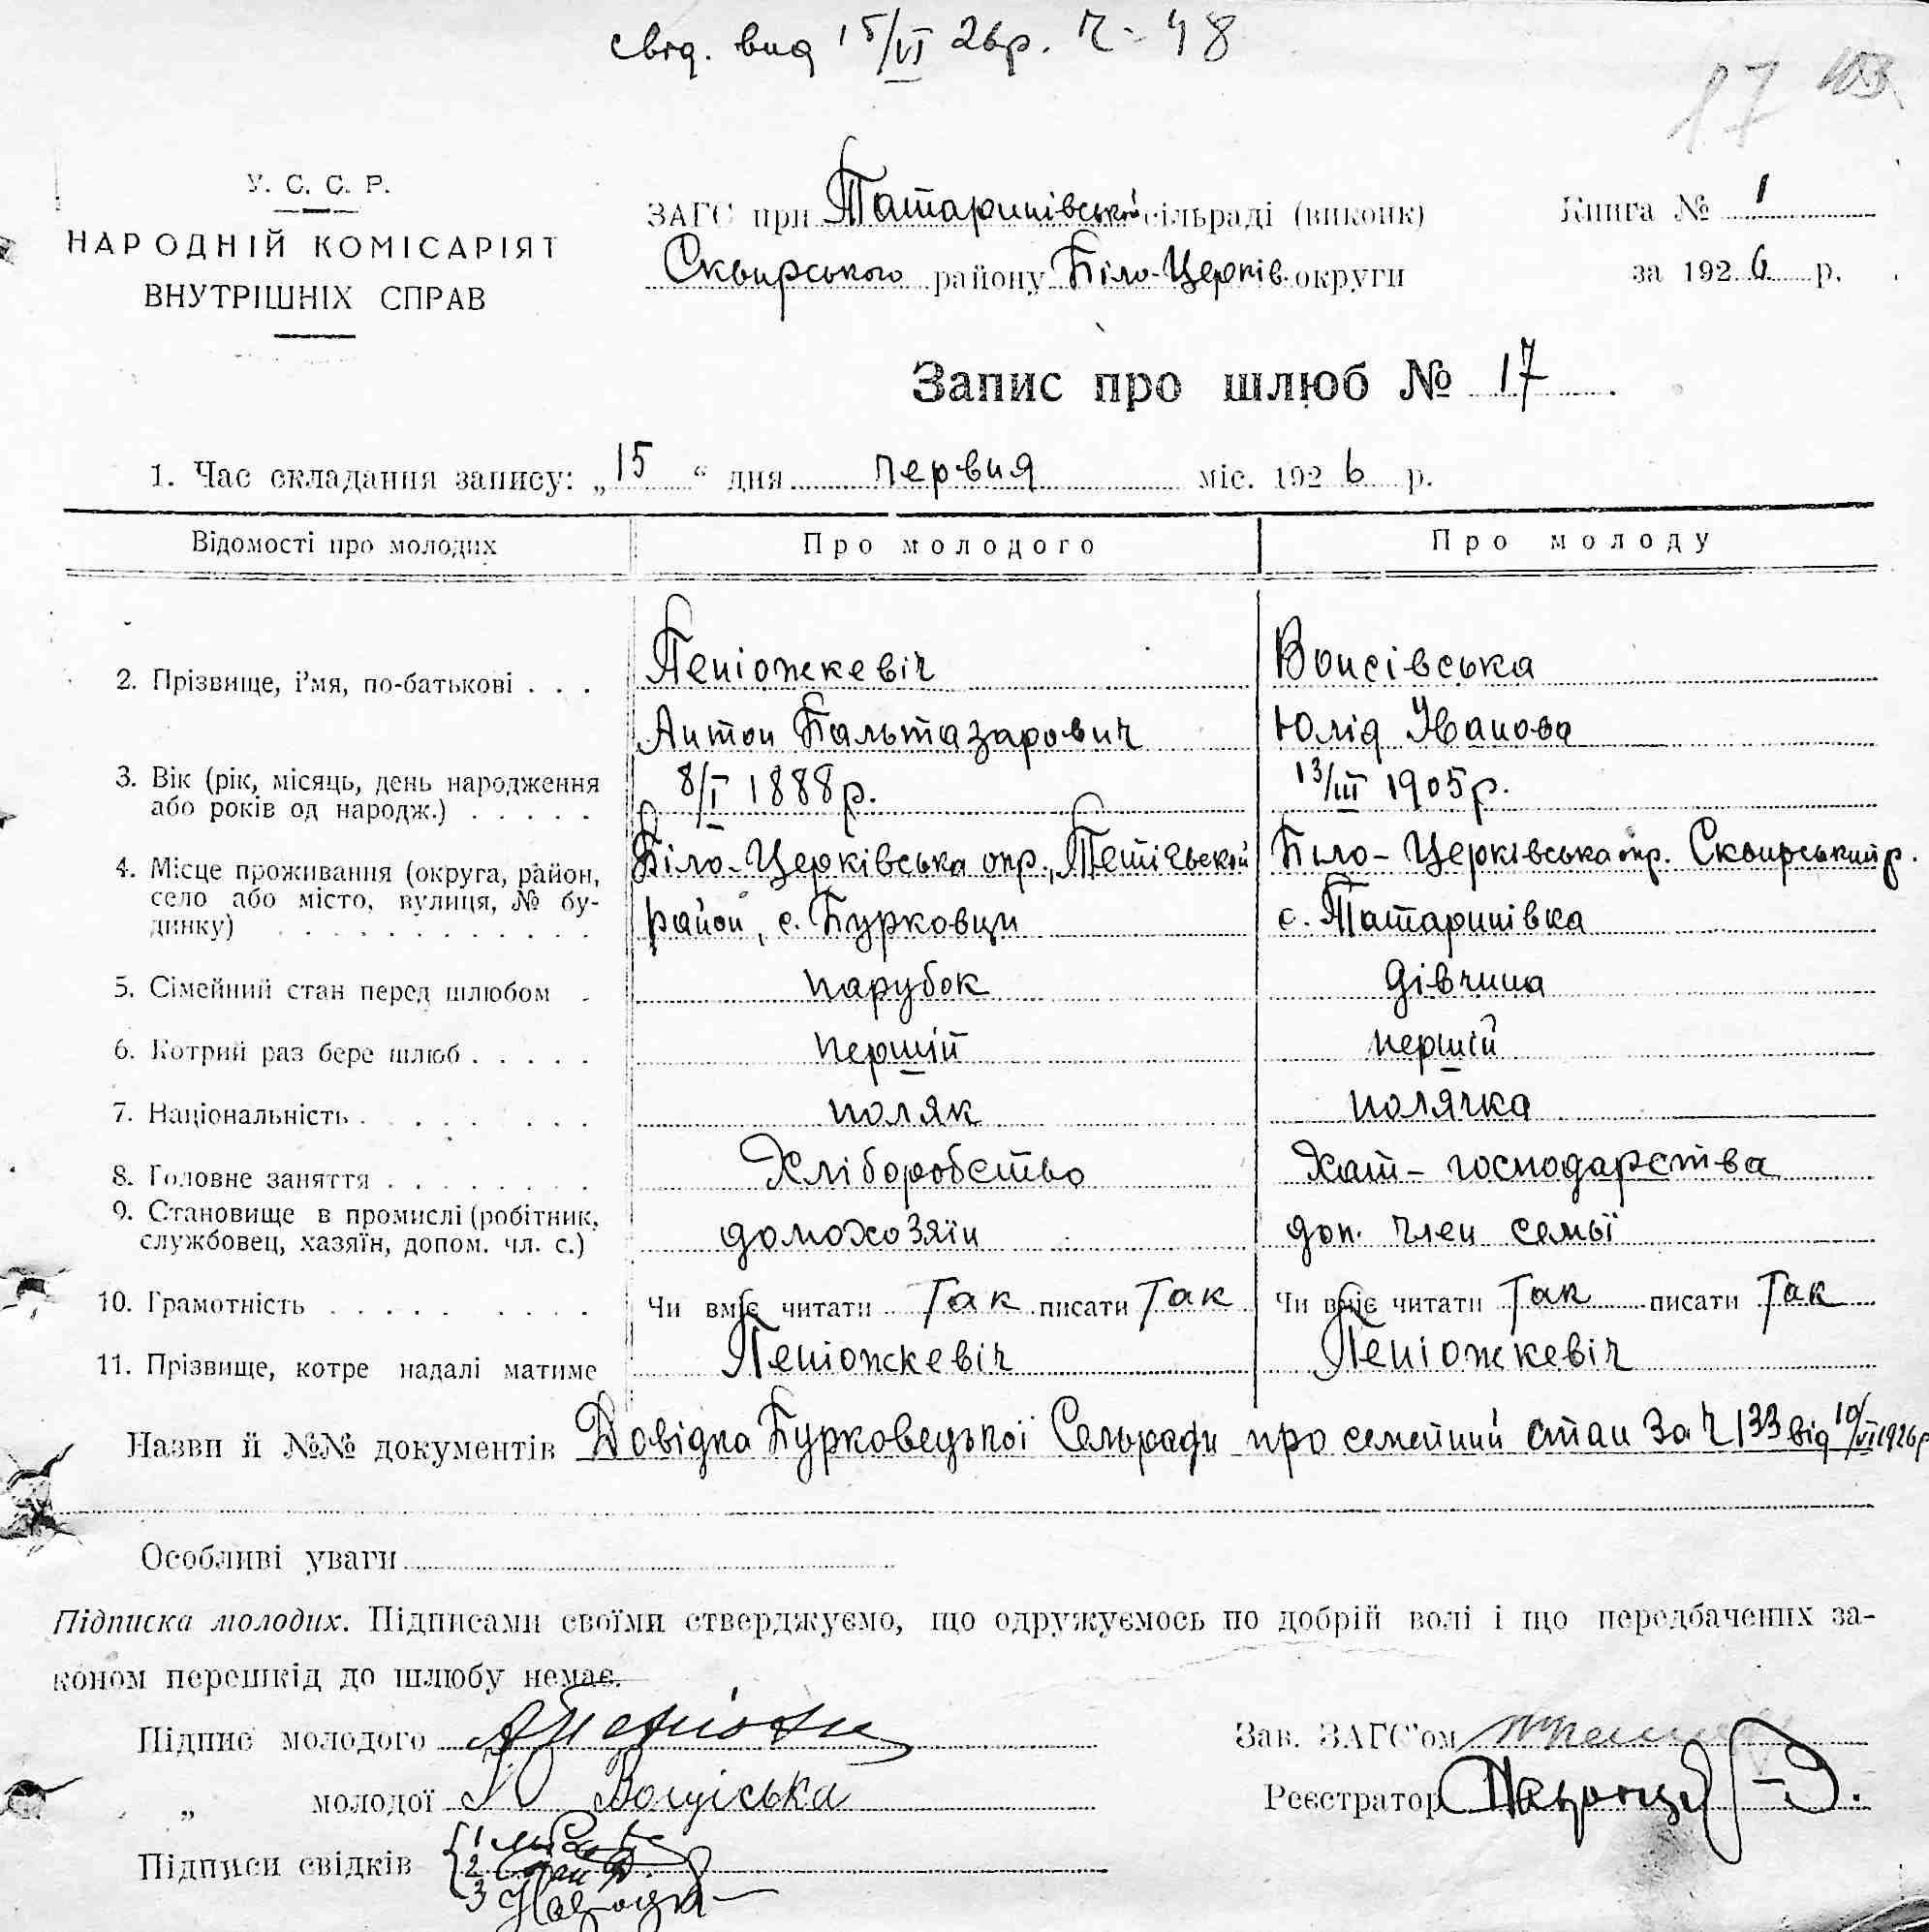 свід. вид 15/VI 26р. Ч-48
17 103
У. С. С. Р.
НАРОДНІЙ КОМІСАРІЯТ
ВНУТРІШНІХ СПРАВ
ЗАГС при Татаринівській сільраді (виконк)
Сквирського району Біло-Церків. округи
Книга № 1
за 1926 р.
Запис про шлюб № 17.
1. Час складання запису: „15“ дня червня міс. 1926 р.
Відомості про молодих
Про молодого
Про молоду
2. Прізвище, і’мя, по-батькові . . .
Пеніонжкевіч
Антон Бальтазарович
Вонсівська
Юлія Іванова
3. Вік (рік, місяць, день народження
або років од народж.) . . . . .
8/I 1888 р.
13/III 1905 р.
4. Місце проживання (округа, район,
село або місто, вулиця, № бу-
динку) . . . . . . . . . . . .
Біло-Церківська окр., Тетіевской
район, с. Бурковци
Біло-Церківська окр. Сквирський р.
с. Татаринівка
5. Сімейний стан перед шлюбом .
парубок
дівчина
6. Котрий раз бере шлюб . . . . .
першій
першій
7. Національність . . . . . . .
поляк
полячка
8. Головне заняття . . . . . . . .
Хліборобство
Хат-господарства
9. Становище в промислі (робітник,
службовец, хазяїн, допом. чл. с.)
домохозяїн
доп. член семьї
10. Грамотність . . . . . . . . .
Чи вміє читати Так писати Так
Чи вміє читати Так писати Так
11. Прізвище, котре надалі матиме
Пеніонжкевіч
Пеніонжкевіч
Назви й №№ документів Довідка Бурковецької Сельради про семейний стан за Ч 133 від 10/VI 1926 р
Особливі уваги
Підписка молодих. Підписами своїми стверджуємо, що одружуємось по добрій волі і що передбачених за-
коном перешкід до шлюбу немає.
Підпис молодого
„ молодої
Підписи свідків 1
2
3
Зав. ЗАГС’ом
Реєстратор